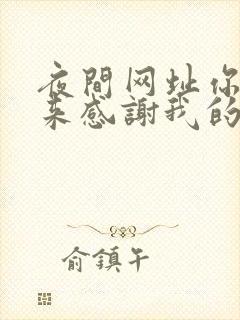 夜間网址你
来感謝我的
俞鎮午